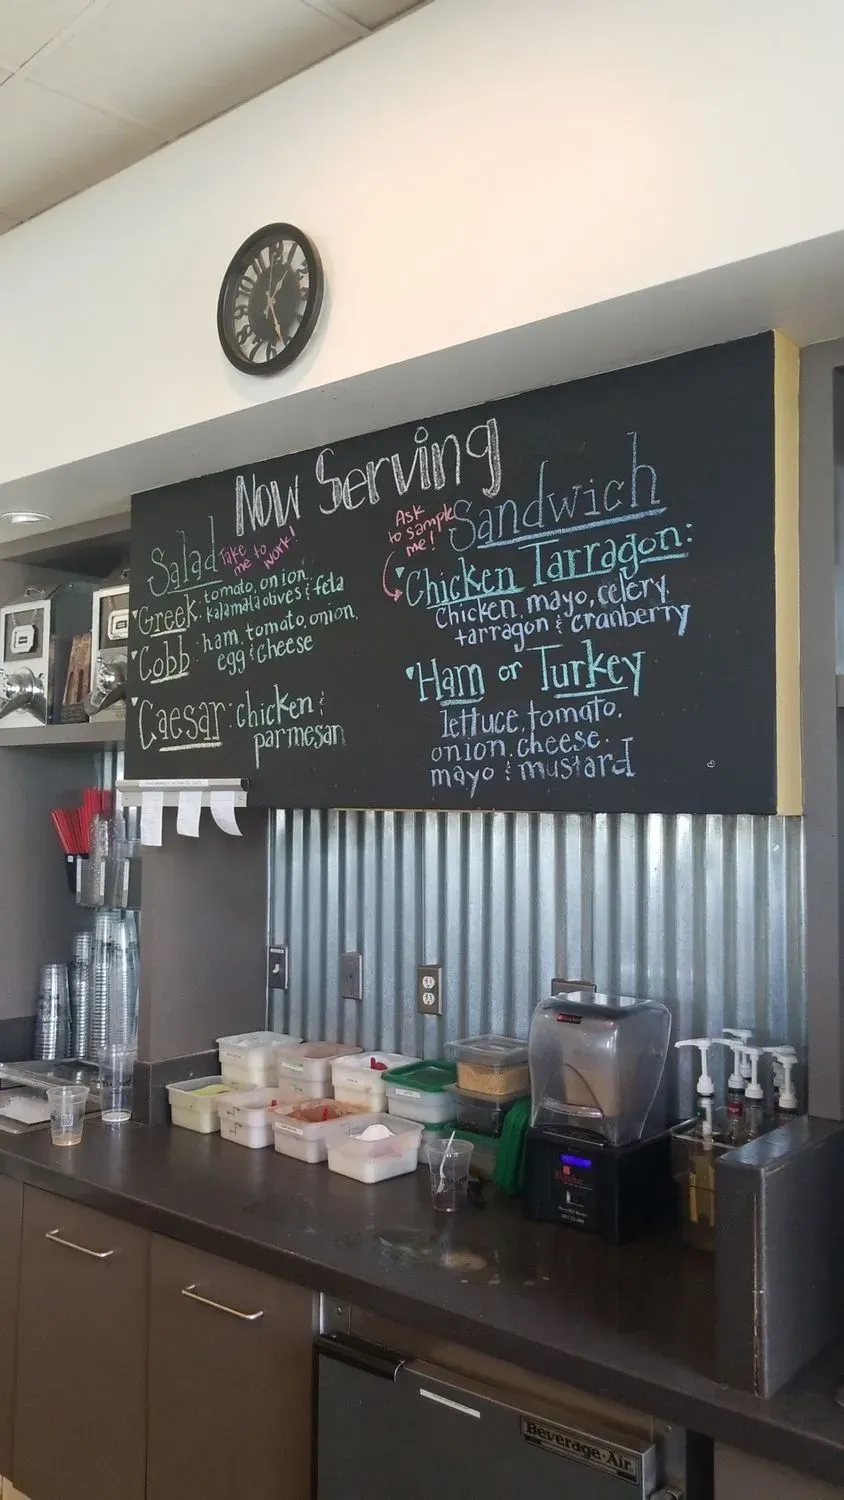 Now Serving
Salad
Take
me to
work!
Greek: tomato, onion,
kalamata olives & feta
Cobb: ham, tomato, onion,
egg & cheese
Caesar: chicken &
parmesan
Ask
to sample
me!
Sandwich
Chicken Tarragon:
Chicken, mayo, celery
tarragon & cranberry
Ham or Turkey
lettuce, tomato,
onion, cheese,
mayo & mustard
Beverage-Air